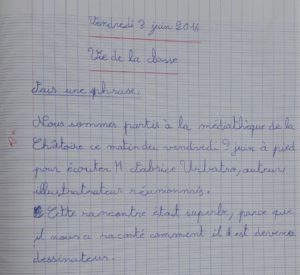 Vendredi 3 juin 2016
Vie de la classe
Fais une phrase.
Nous sommes partis à la médiathèque de la
Châtoire ce matin du vendredi 3 juin à pied
pour écouter M. Fabrice Urbatro, auteur,
illustratrateur réunionnais.
Cette rencontre était superbe, parce que
il nous a raconté comment il est devenu
dessinateur.